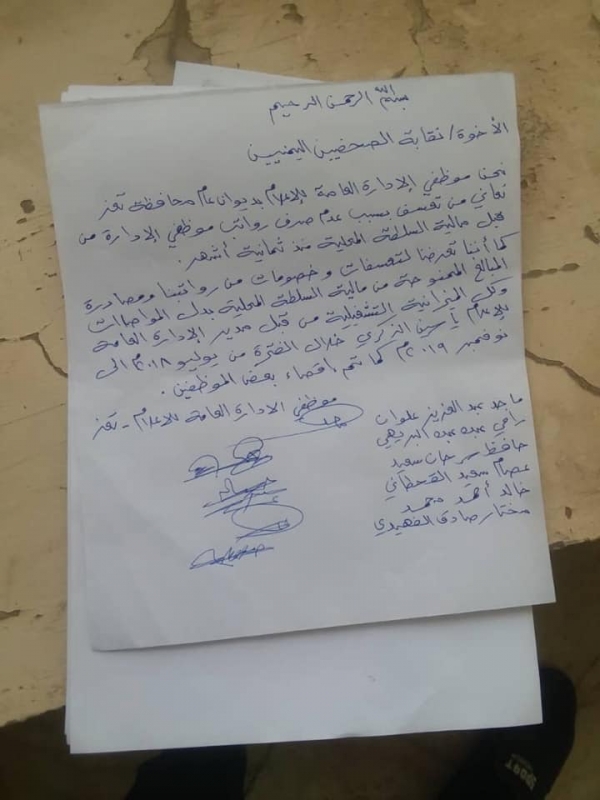 بسم الله الرحمن الرحيم
الأخوة / نقابة الصحفيين اليمنيين
نحن موظفي الإدارة العامة للإعلام بديوان عام محافظة تعز
نعاني من تعسف بسبب عدم صرف رواتب موظفي الإدارة من
قبل مالية السلطة المحلية منذ ثمانية أشهر.
كما أننا تعرضنا لتعسفات وخصومات من رواتبنا ومصادرة
المبالغ الممنوحة من مالية السلطة المحلية بدل المواصلات
وكل الميزانية التشغيلية من قبل مدير الإدارة العامة
للإعلام ياسين الزكري خلال الفترة من يوليو ٢٠١٨م الى
نوفمبر ٢٠١٩م كما تم إقصاء بعض الموظفين.
موظفي الإدارة العامة للإعلام - تعز
ماجد عبدالعزيز علوان
رامي عبده عبده البريهي
حافظ سرحان سعيد
عصام سعيد القحطاني
خالد أحمد محمد
مختار صادق الفهيدي